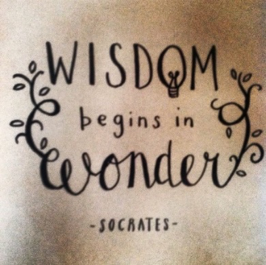 WISDOM
begins in
wonder
-SOCRATES-